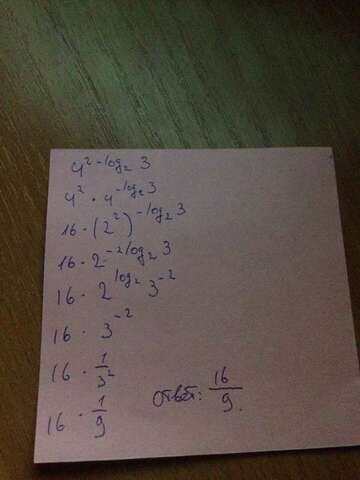 4^{2-log_2 3}
4^2 · 4^{-log_2 3}
16 · (2^2)^{-log_2 3}
16 · 2^{-2log_2 3}
16 · 2^{log_2 3^{-2}}
16 · 3^{-2}
16 · 1/3^2
16 · 1/9
ответ: 16/9.